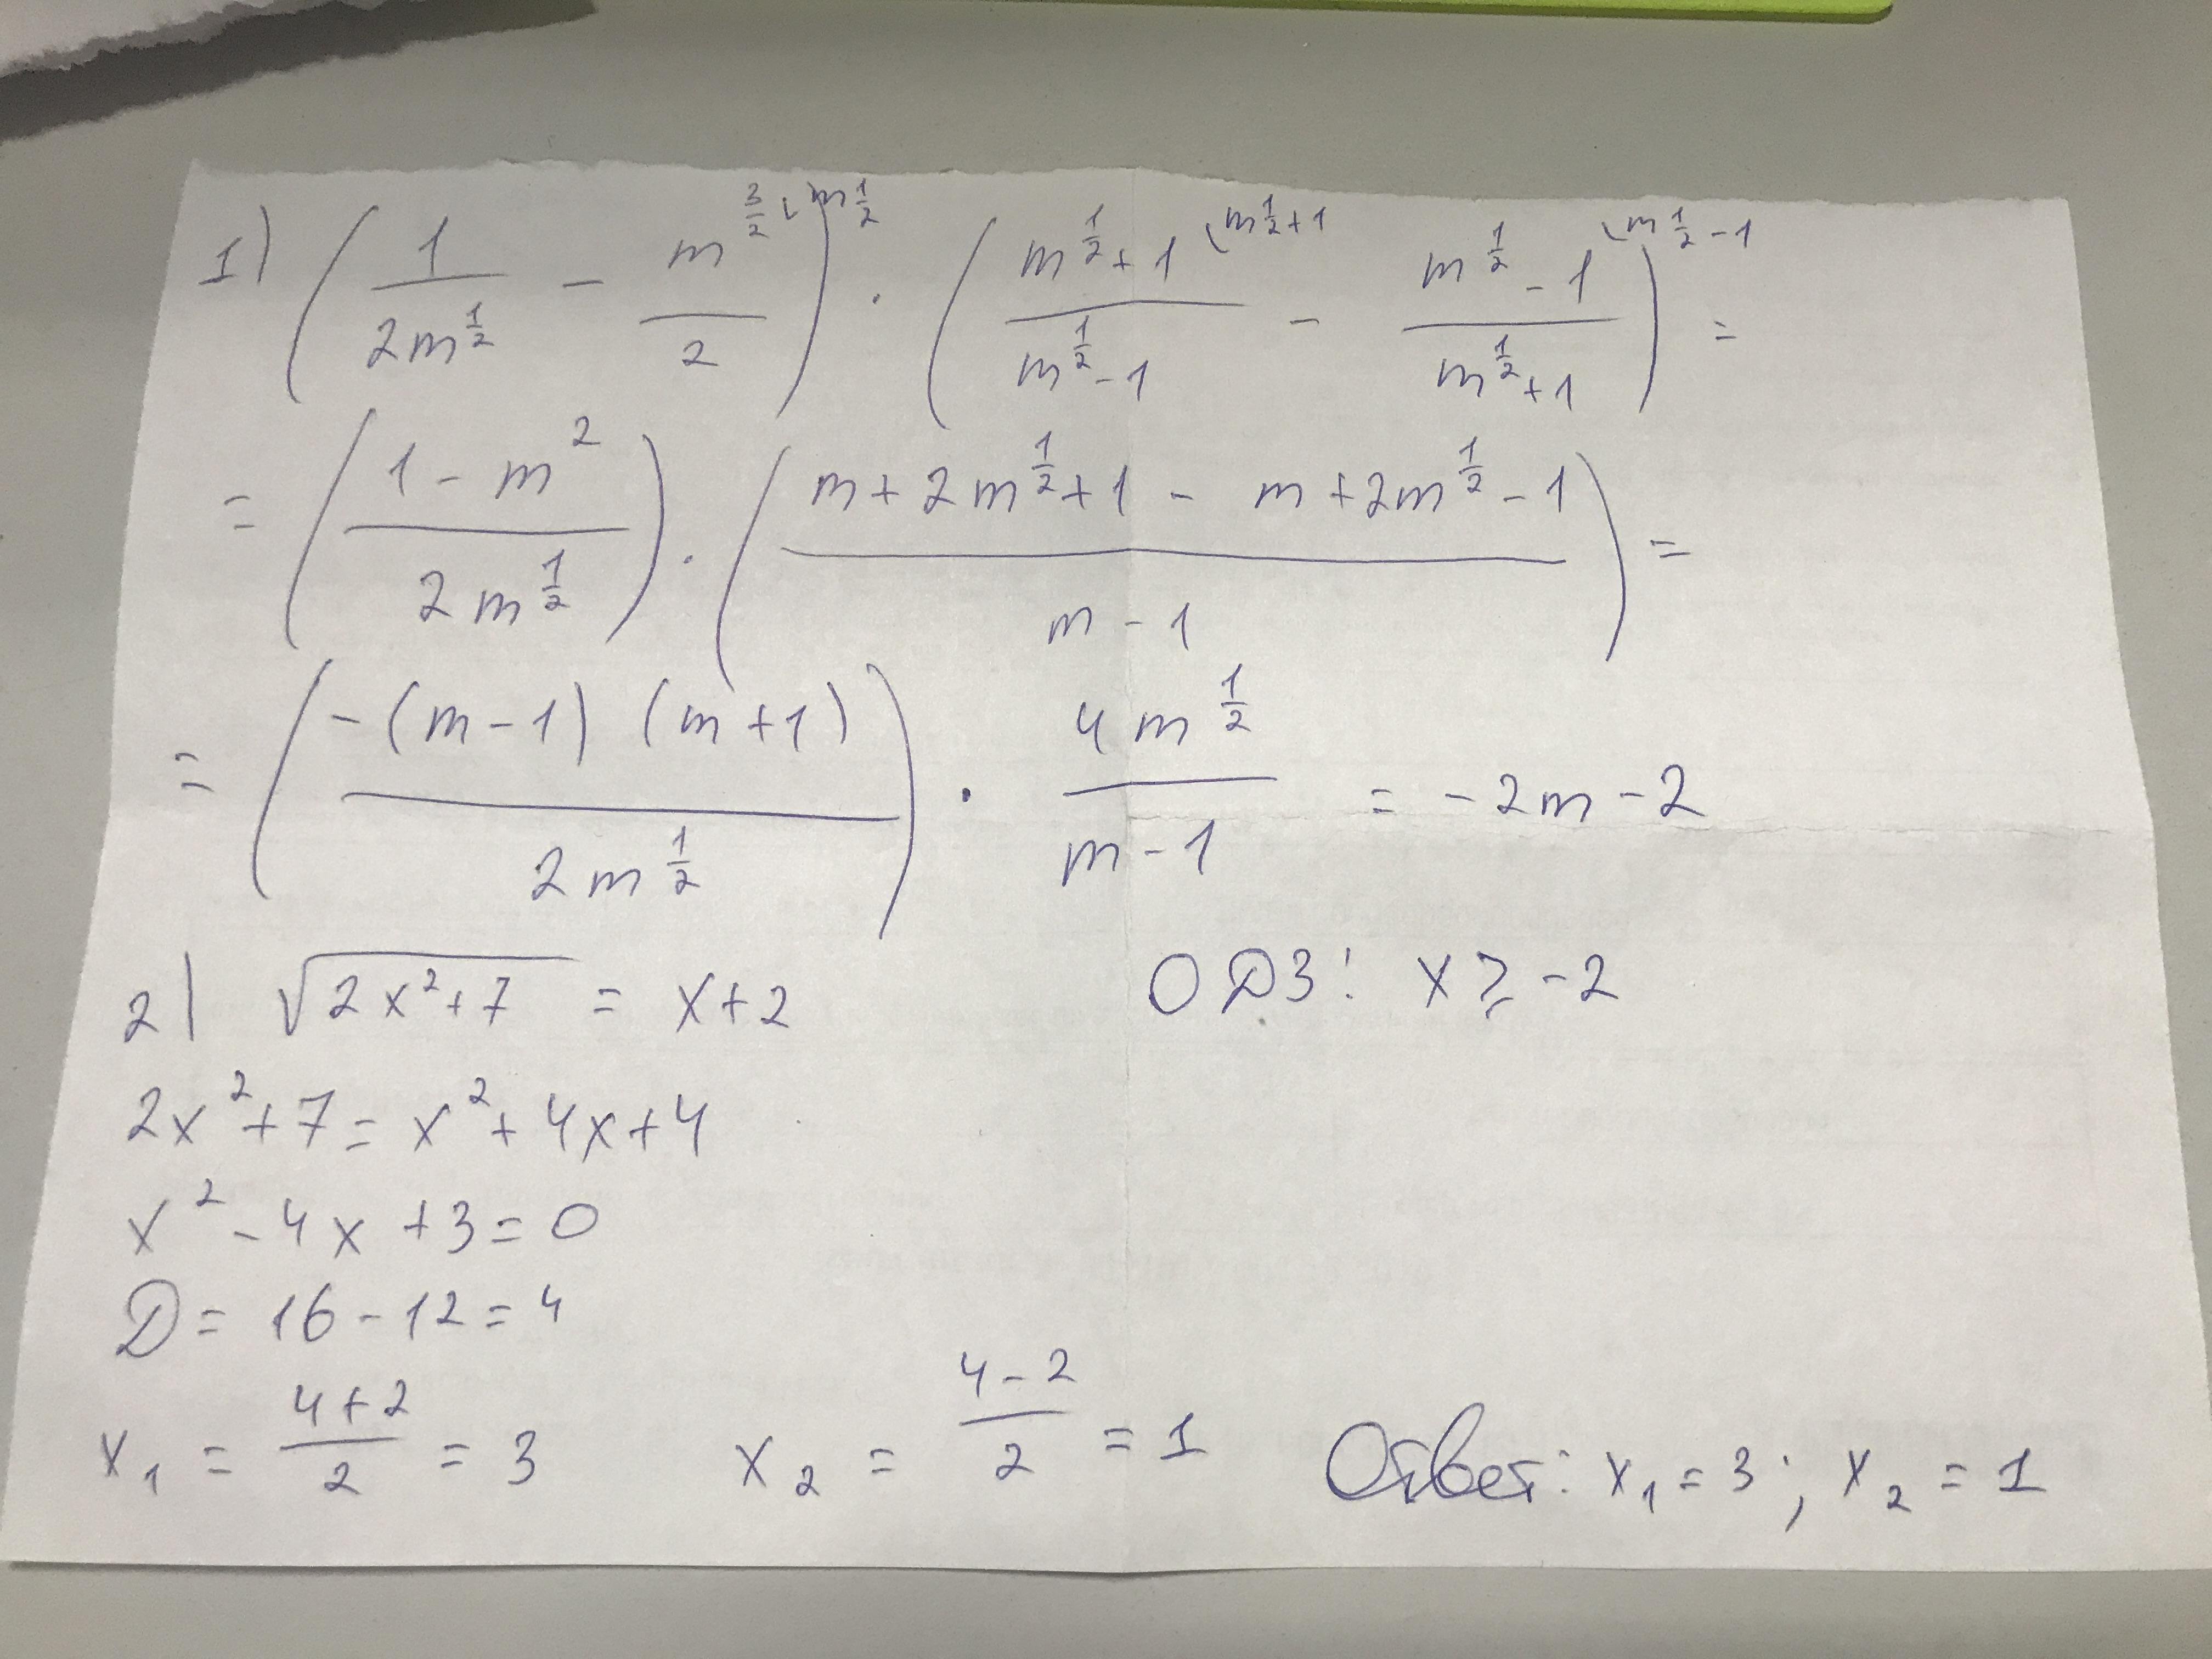 1) (1/(2m^(1/2)) - m^(3/2)/2 ⌞m^(1/2)) · ((m^(1/2)+1)/(m^(1/2)-1) ⌞m^(1/2)+1 - (m^(1/2)-1)/(m^(1/2)+1) ⌞m^(1/2)-1) =
= ((1-m^2)/(2m^(1/2))) · ((m+2m^(1/2)+1 - m+2m^(1/2)-1)/(m-1)) =
= (-(m-1)(m+1)/(2m^(1/2))) · 4m^(1/2)/(m-1) = -2m-2
2) √(2x²+7) = x+2 ОДЗ: x ≥ -2
2x²+7 = x²+4x+4
x²-4x+3=0
D = 16-12=4
x₁ = (4+2)/2 = 3 x₂ = (4-2)/2 = 1 Ответ: x₁=3; x₂=1